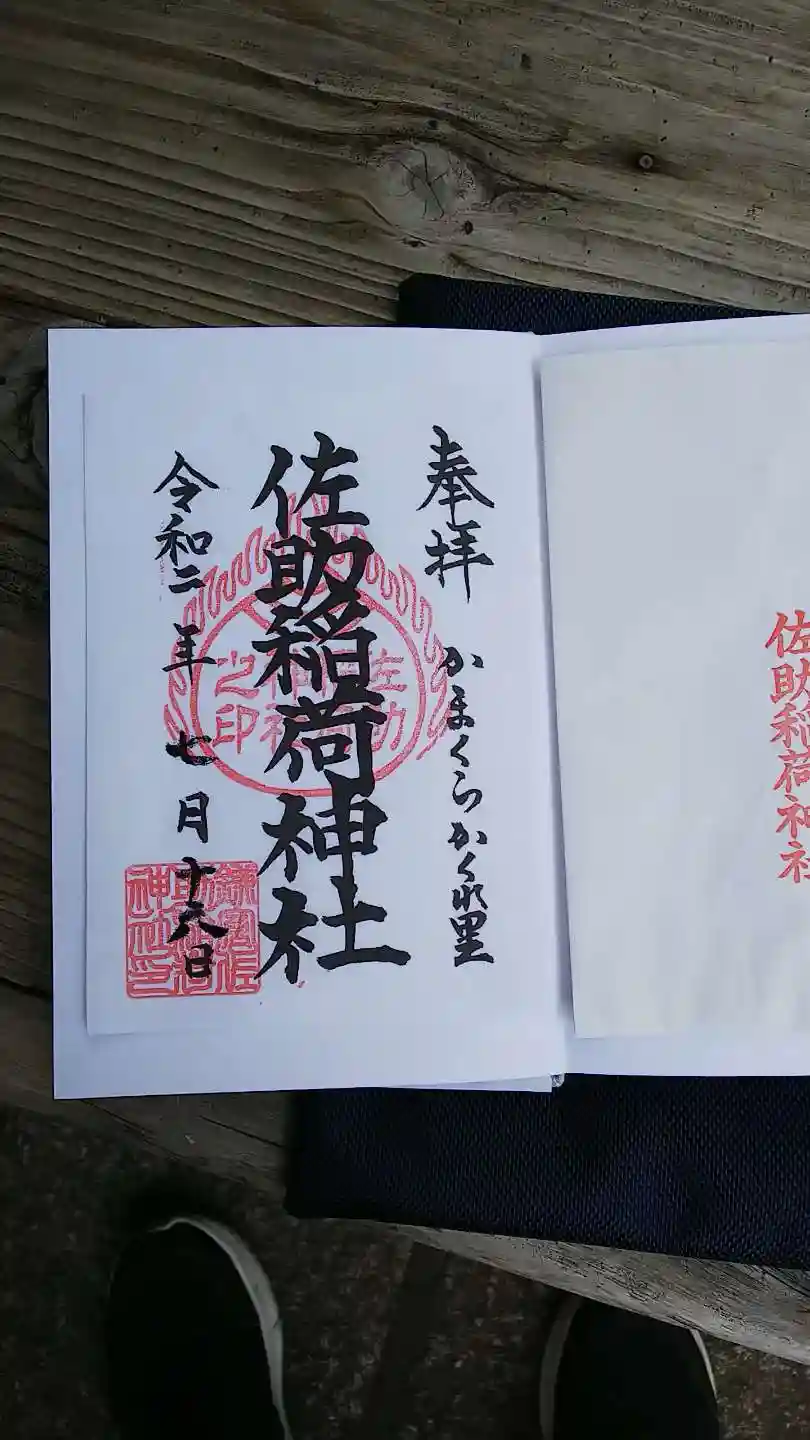 奉拝 かまくらかくれ里
佐助稲荷神社
令和二年七月十六日
佐助稲荷神社之印
佐助稲荷神社